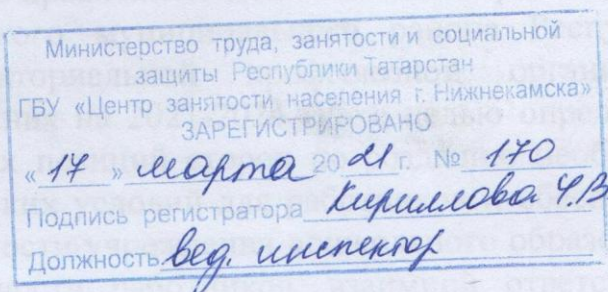 Министерство труда, занятости и социальной
защиты Республики Татарстан
ГБУ «Центр занятости населения г. Нижнекамска»
ЗАРЕГИСТРИРОВАНО
«17» марта 2021 г. № 170
Подпись регистратора Кириллова Ч.В
Должность вед. инспектор